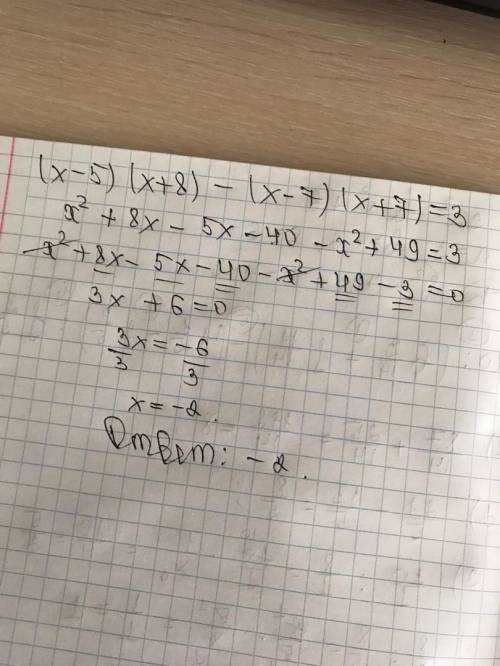 (x-5) (x+8) - (x-7) (x+7) = 3
x² + 8x - 5x - 40 - x² + 49 = 3
x² + 8x - 5x - 40 - x² + 49 - 3 = 0
3x + 6 = 0
3/3 x = -6/3
x = -2.
Ответ: -2.